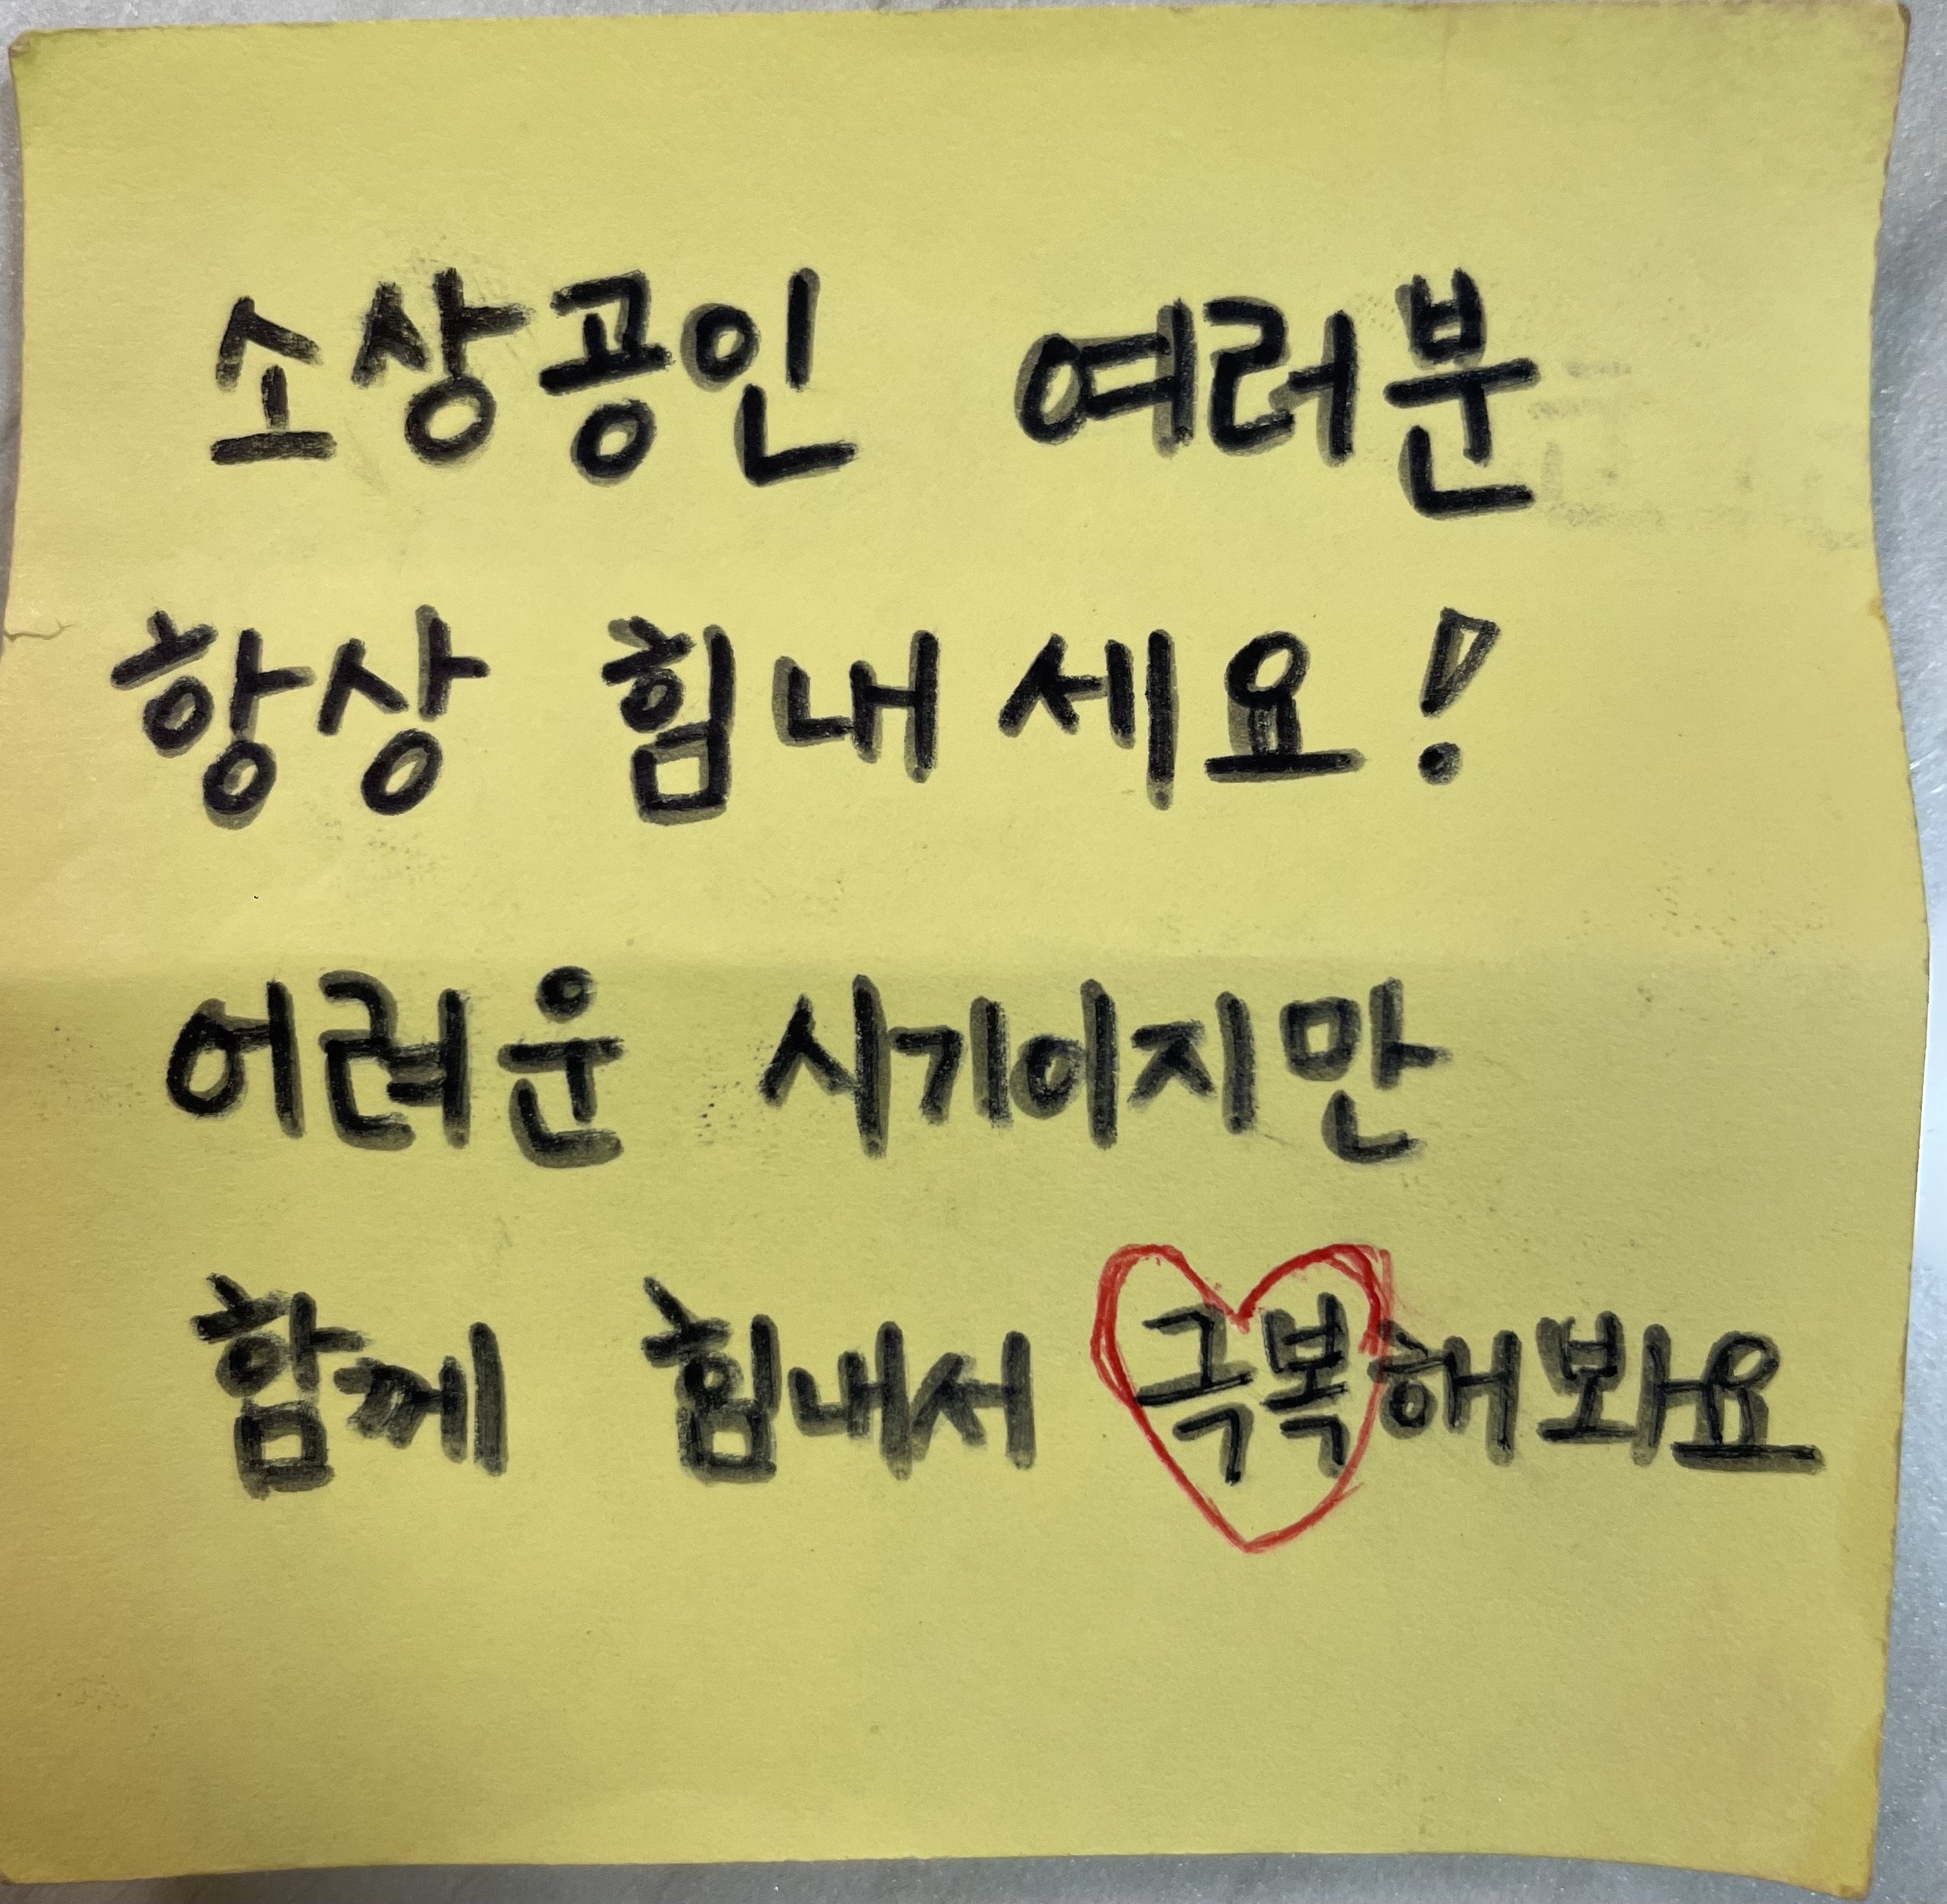 소상공인 여러분
항상 힘내세요!
어려운 시기이지만
함께 힘내서 극복해봐요